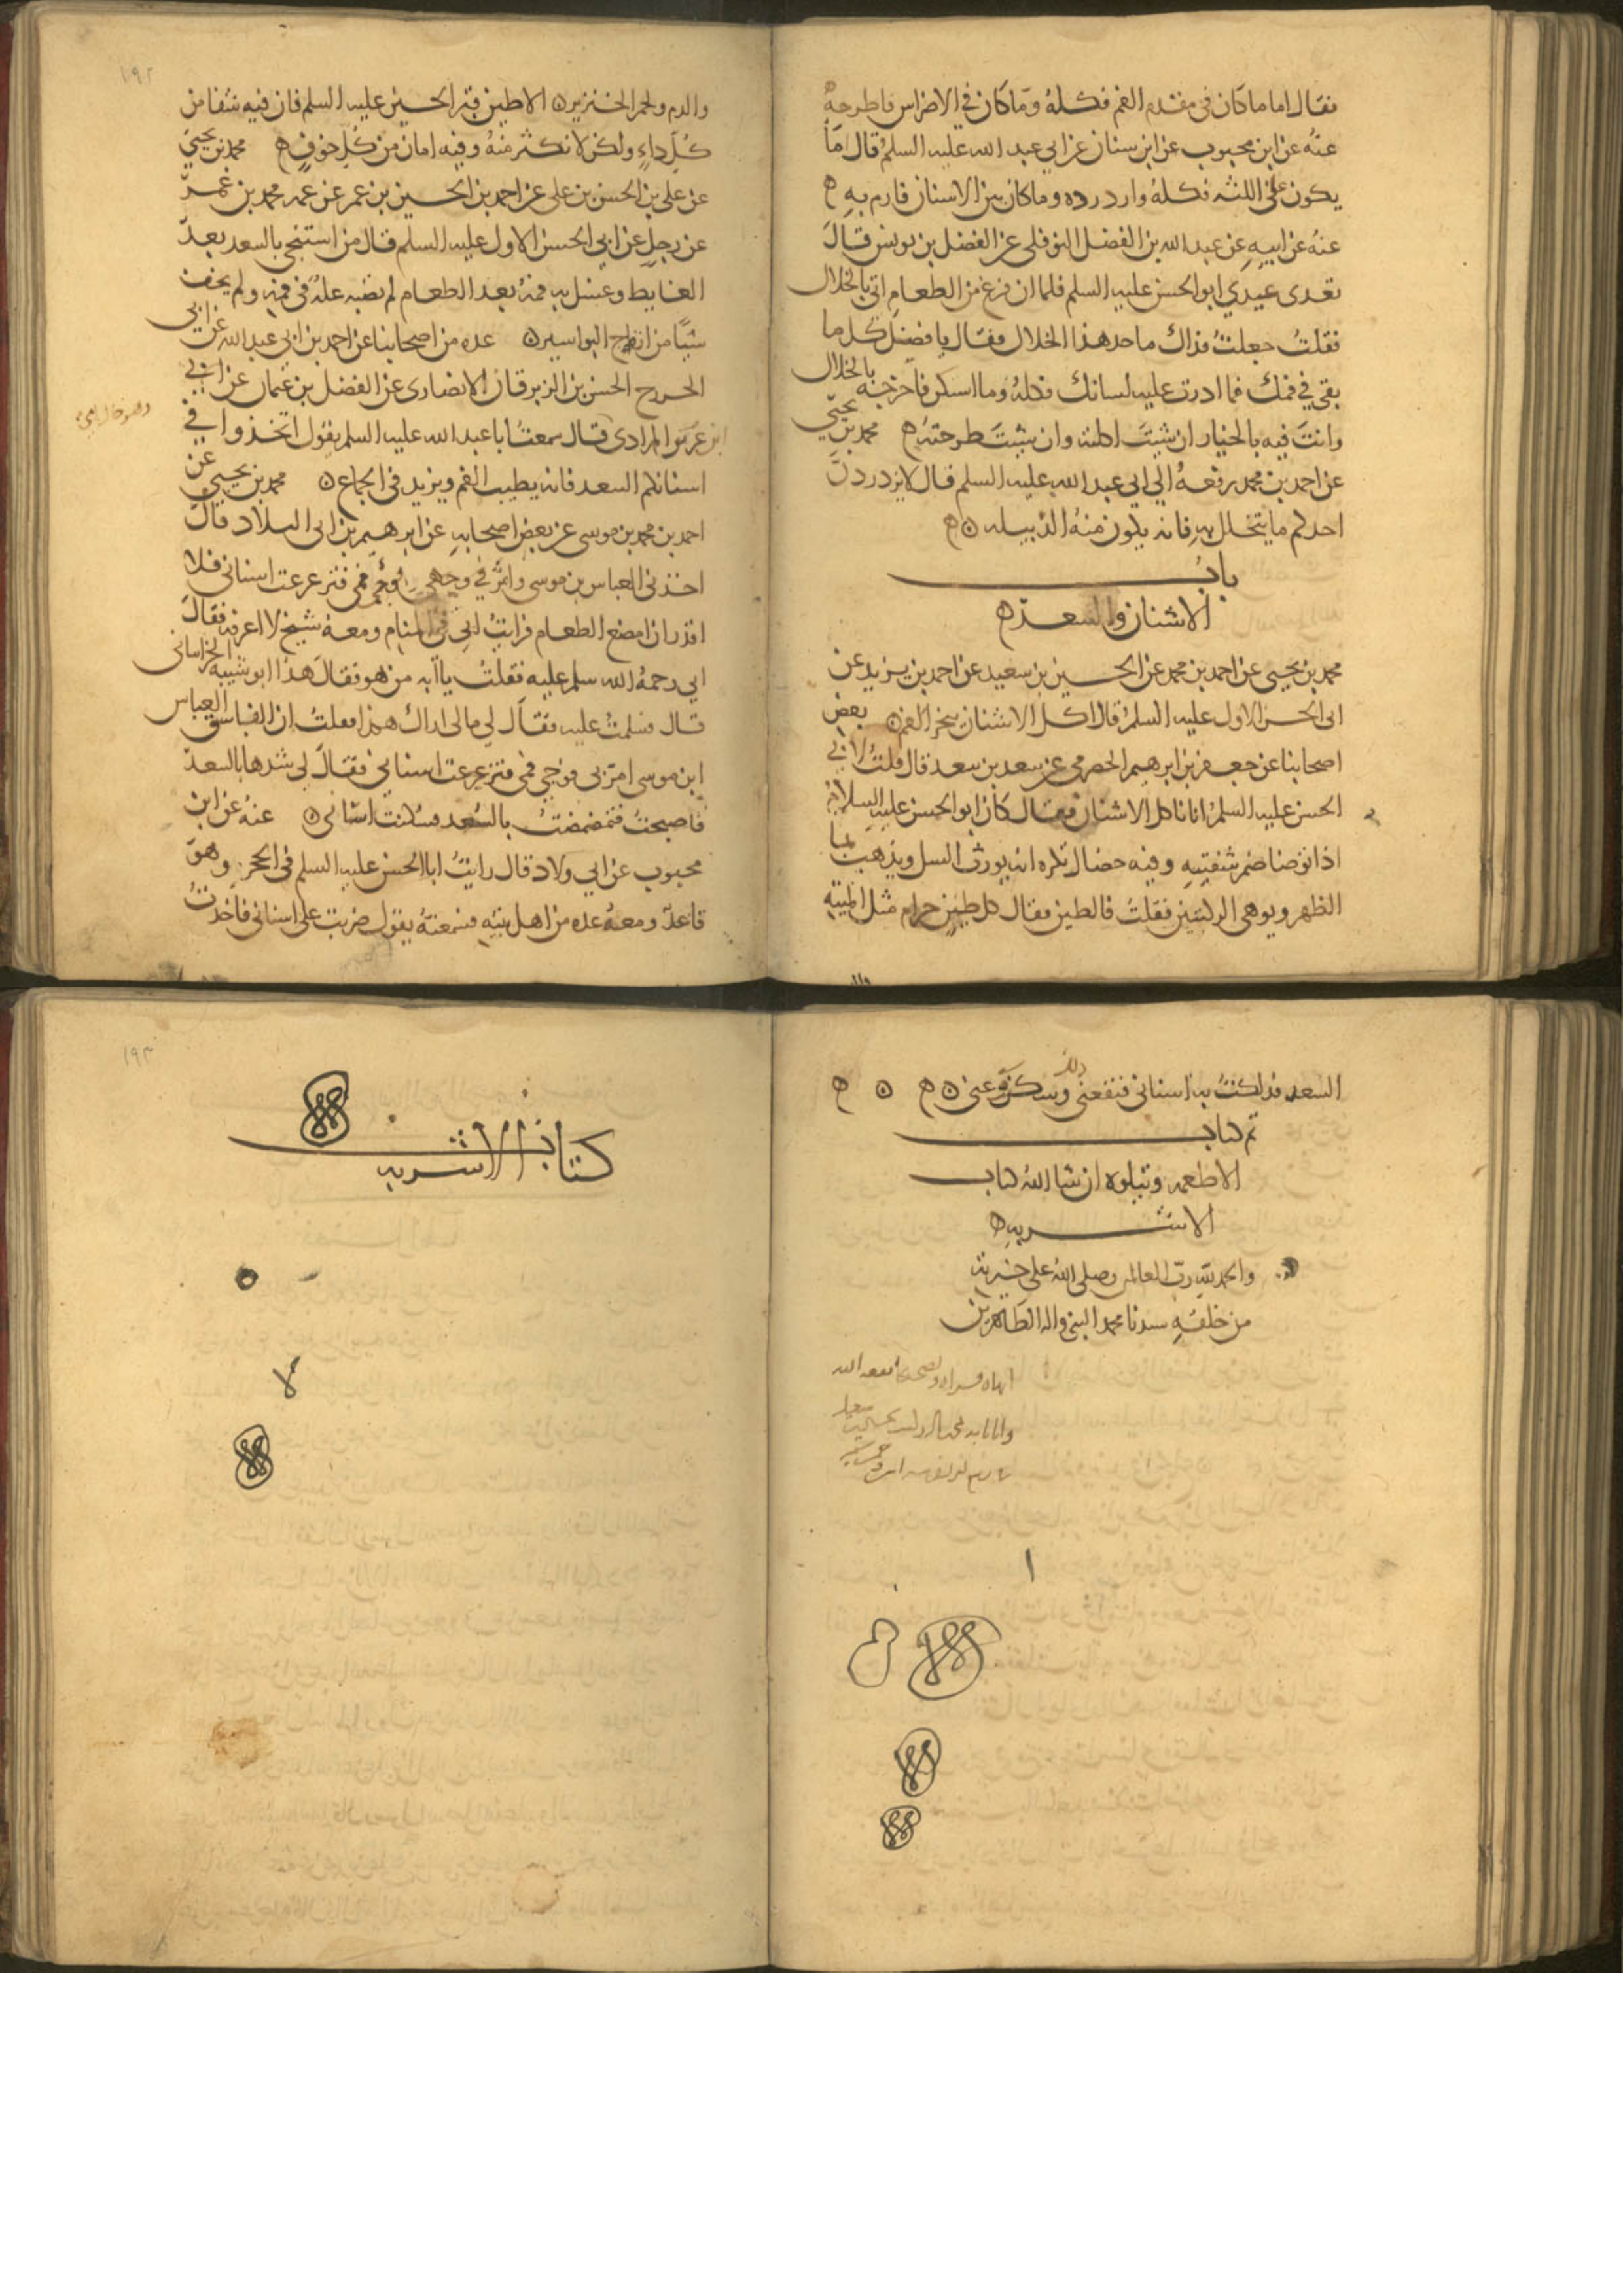 فقال اما ما كان في مقدم الفم فكلهُ وما كان في الاضراس فاطرحهُ
عنهُ عن ابن محبوب عن ابن سنان عن ابي عبد الله عليه السلم قال امّا
يكون على اللثه فكلهُ وازدرده وما كان بين الاسنان فارم بهِ
عنهُ عن ابيهِ عن عبد الله بن الفضل النوفلي عن الفضل بن يونس قال
تغدى عندي ابو الحسن عليه السلم فلما ان فرغ من الطعام اتي بالخلال
فقلتُ جعلتُ فداك ما حد هذا الخلال فقال يا فضل كل ما
بقي في فمك فما ادرت عليه لسانك فكلهُ وما استكن فاخرجه بالخلال
وانت فيه بالخيار ان شيت اكلته وان شيت طرحتهُ محمد بن يحيى
عن احمد بن محمد رفعهُ الي ابي عبد الله عليه السلم قال لا يزدردنّ
احدكم ما يتخلل بهِ فانه يكون منهُ الدبيله
باب
الاشنان والسعد
محمد بن يحيى عن احمد بن محمد عن الحسين بن سعيد عن احمد بن يزيد عن
ابي الحسن الاول عليه السلم قال اكل الاشنان يبخر الفم بعض
اصحابنا عن جعفر بن ابرهيم الحضرمي عن سعد بن سعد قال قلتُ لابي
الحسن عليه السلم انا ناكل الاشنان فقال كان ابو الحسن عليه السلام
اذا توضا ضم شفتيهِ وفيه خصال تكره انه يورث السل ويذهب بما
الظهر ويوهي الركبتين فقلتُ فالطين فقال كل طين حرام مثل الميته
والدم ولحم الخنزير الا طين قبر الحسين عليه السلم فان فيه شفا من
كُلّ داءٍ ولكن لا تكثر منهُ وفيه امان من كُلّ خوفٍ محمد بن يحيى
عن علي بن الحسن بن علي عن احمد بن الحسين بن عمر عن عمه محمد بن عمر
عن رجل عن ابي الحسن الاول عليه السلم قال من استنجي بالسعد بعد
الغايط وغسل به فمهُ بعد الطعام لم تصبه علهٌ في فمه ولم يخف
شيًا من ارياح البواسير عده من اصحابنا عن احمد بن ابي عبد الله عن ابي
الخزرج الحسن بن الزبرقان الانصاري عن الفضل بن عثمان عن ابي
المرادي قال سمعتُ ابا عبد الله عليه السلم يقول اتخذوا في
اسنانكم السعد فانه يطيب الفم ويزيد في الجماع محمد بن يحيى عن
احمد بن محمد بن موسى عن بعض اصحابهِ عن ابرهيم بن ابي البلاد قال
اخذني العباس بن موسى وامرّ في فمي فتزعزعت اسناني فلا
اقدر ان امضغ الطعام فرايتُ ابي في المنام ومعهُ شيخ لا اعرفه فقال
ابي رحمهُ الله سلم عليه فقلتُ يا ابه من هو فقال هذا ابو شيبه الخراساني
قال فسلمتُ عليه فقال لي ما لي اراك هكذا فقلتُ ان الفاسق العباس
ابن موسى امر بي فوجي فمي فتزعزعت اسناني فقال لي شدها بالسعد
فاصبحتُ فتمضمضتُ بالسُعد فسكنت اسناني عنهُ عن ابن
محبوب عن ابي ولاد قال رايتُ ابا الحسن عليه السلم في الحجر وهو
قاعدٌ ومعهُ عده من اهل بيته فسمعتهُ يقول ضربت على اسناني فاخذتُ
١٩٢
السعد فدلكتُ به اسناني فنفعني ذلك وسكن عني
تم كتاب
الاطعمه ويتلوه ان شا اللهُ كتاب
الاشربه
والحمد لله ربّ العالمين وصلى اللهُ على خيرته
من خلقهِ سيدنا محمد النبي واله الطاهرين
١٩٣
كتاب الاشربه